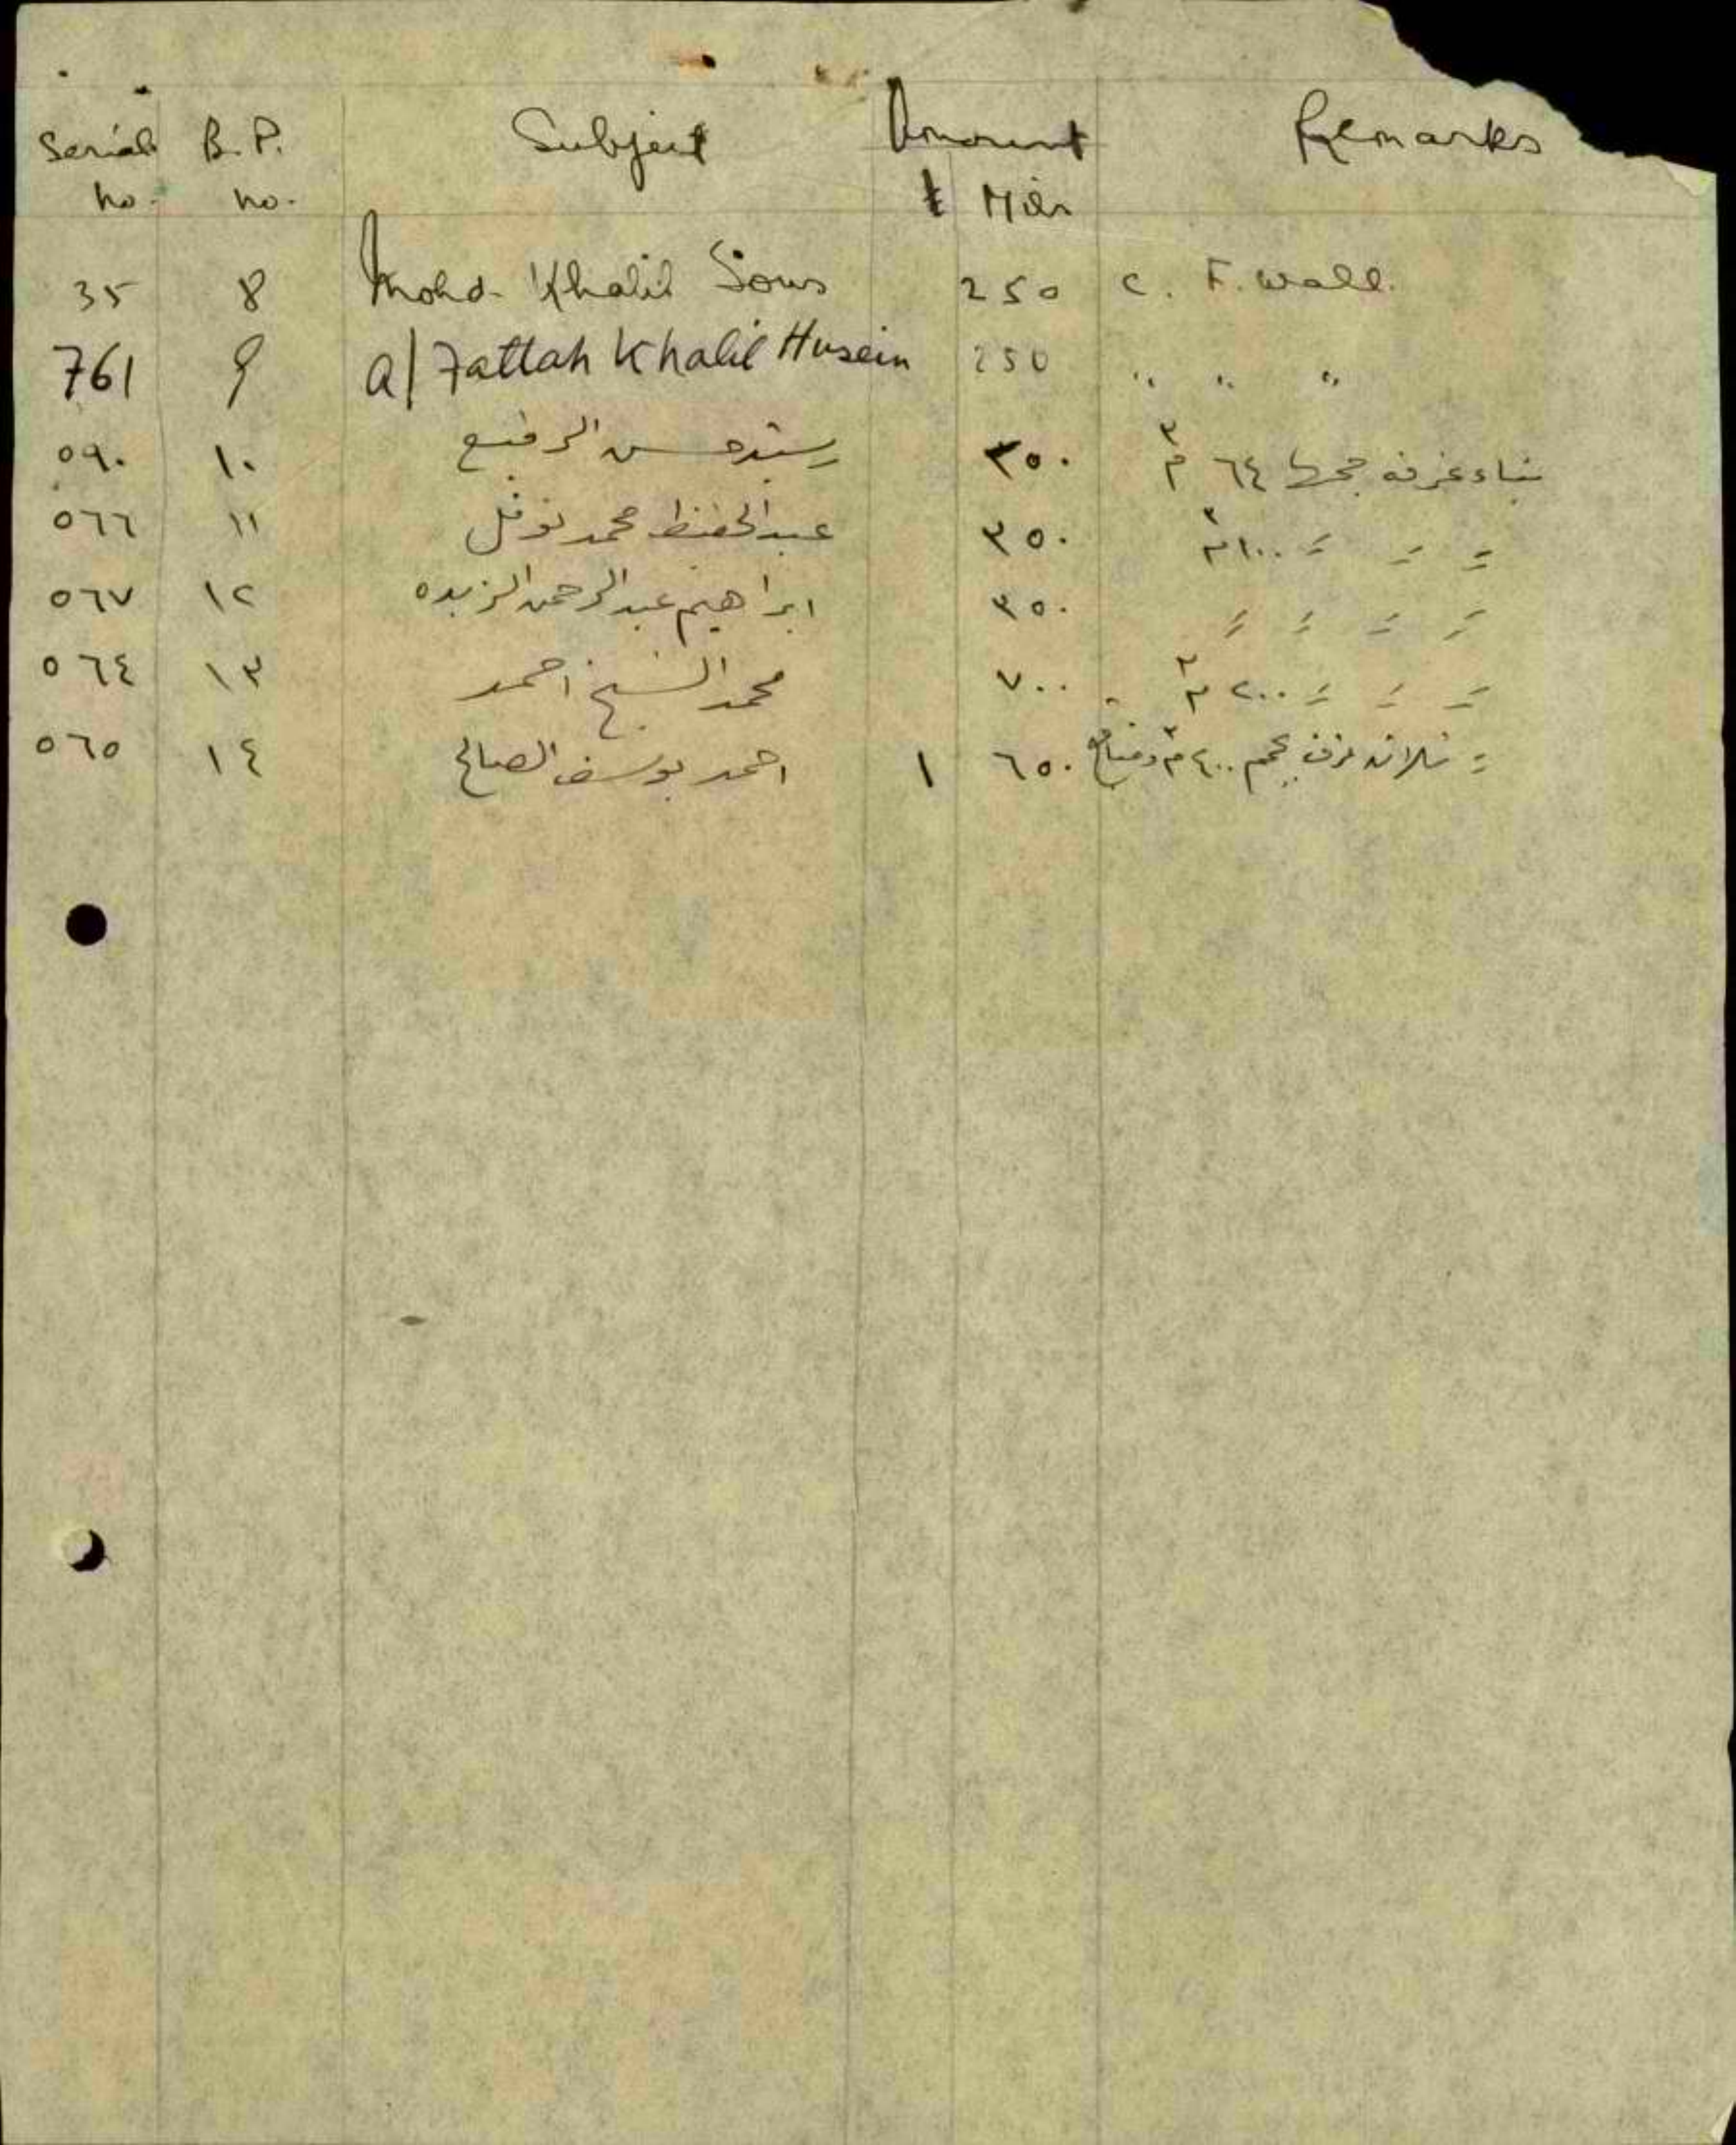 Serial no. B.P. no. Subject Amount £ Mils Remarks
35 8 Mohd. Khalil Sous 250 C. F. Wall.
761 9 A/Fattah Khalil Husein 250 " " "
٥٩٠ ١٠ رشيد حسن الرفيع ٣٥٠ بناء غرفه حجمها ٦٤ م٣
٥٦٦ ١١ عبد الحفيظ محمد نوفل ٣٥٠ = = = ١٠٠ م٣
٥٦٧ ١٢ ابراهيم عبد الرحمن الزبده ٣٥٠ = = = =
٥٦٤ ١٣ محمد الشيخ احمد ٧٠٠ = = = ٢٠٠ م٣
٥٦٥ ١٤ احمد يوسف الصالح ١ ٦٥٠ = ثلاثه غرف بحجم ٤٠٠ م٣ ومنافع